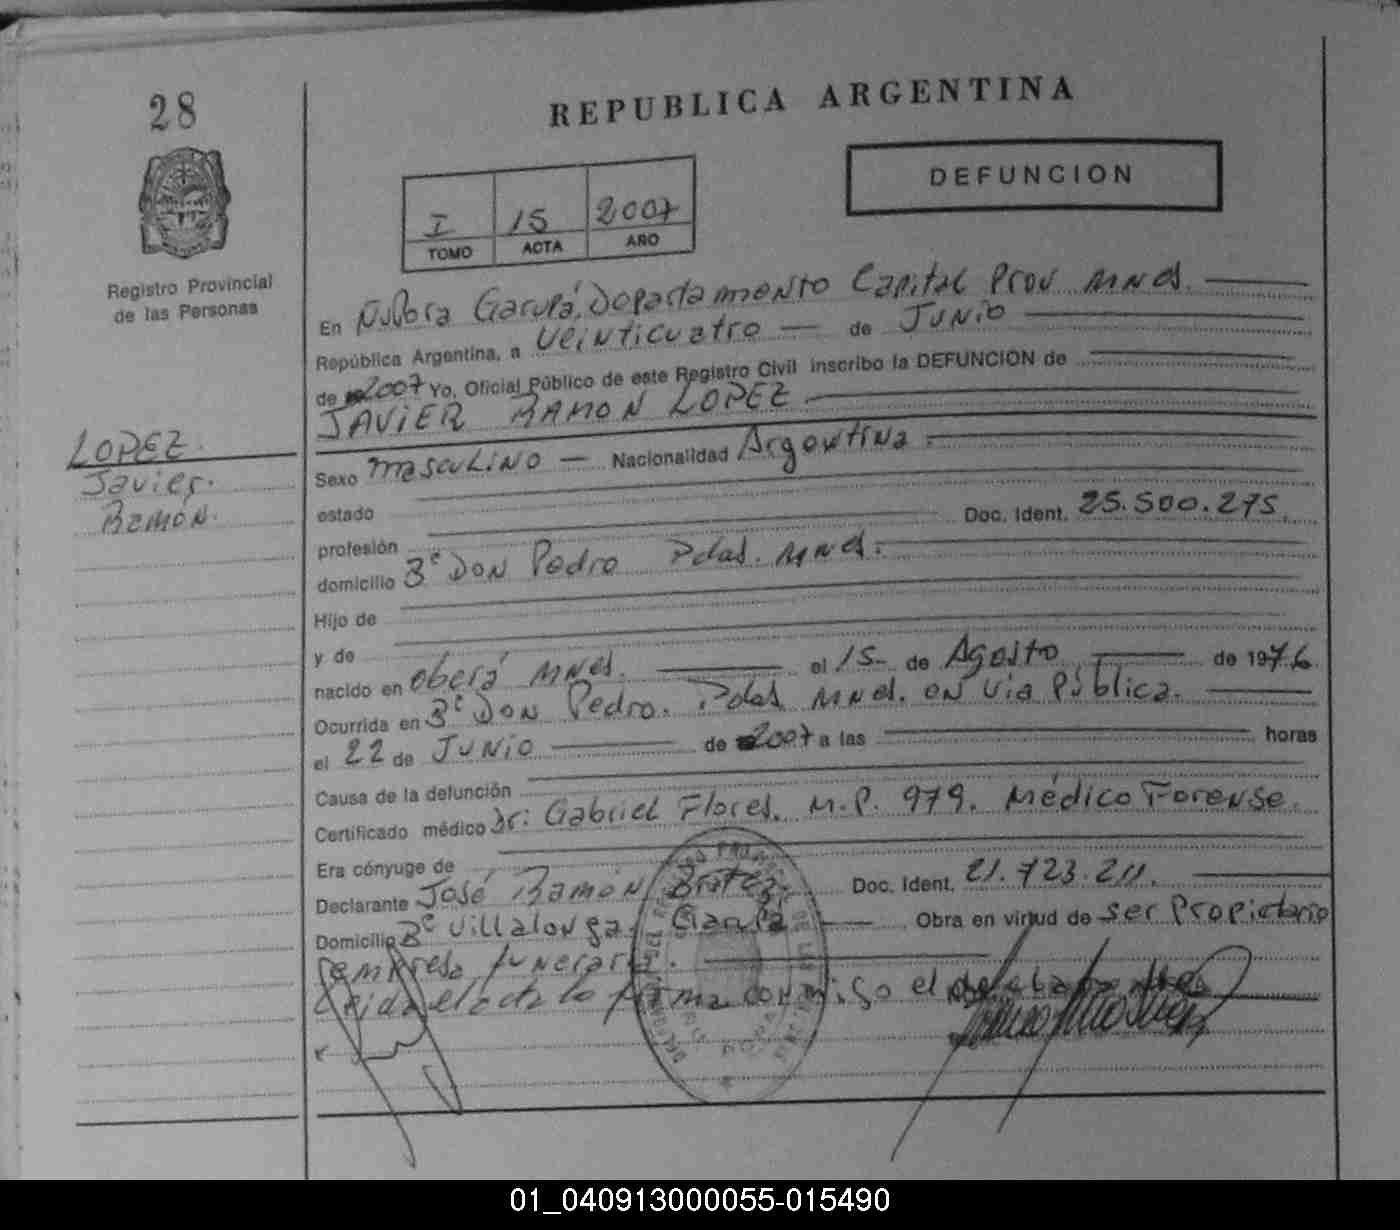 28
REPUBLICA ARGENTINA
DEFUNCION
I 15 2007
TOMO ACTA AÑO
Registro Provincial
de las Personas
En Garupá, Departamento Capital Prov Mnes.
República Argentina, a Veinticuatro de Junio
de 2007 Yo, Oficial Público de este Registro Civil inscribo la DEFUNCION de
JAVIER RAMON LOPEZ
LOPEZ.
Javier.
Ramón.
Sexo masculino Nacionalidad Argentina.
estado
profesión Doc. Ident. 25.500.275
domicilio Bº Don Pedro Pdas. Mnes.
Hijo de
y de
nacido en Oberá Mnes. el 15 de Agosto de 1976
Ocurrida en Bº Don Pedro. Pdas Mnes. en Via Pública.
el 22 de Junio de 2007 a las horas
Causa de la defunción
Certificado médico Dr: Gabriel Flores. M.P. 979. Médico Forense.
Era cónyuge de
Declarante José Ramón Doc. Ident. 21.723.211.
Domicilio Bº Villalonga. Garupá Obra en virtud de ser Propietario
empresa funeraria.
Leida el acta la firma conmigo el
01_040913000055-015490